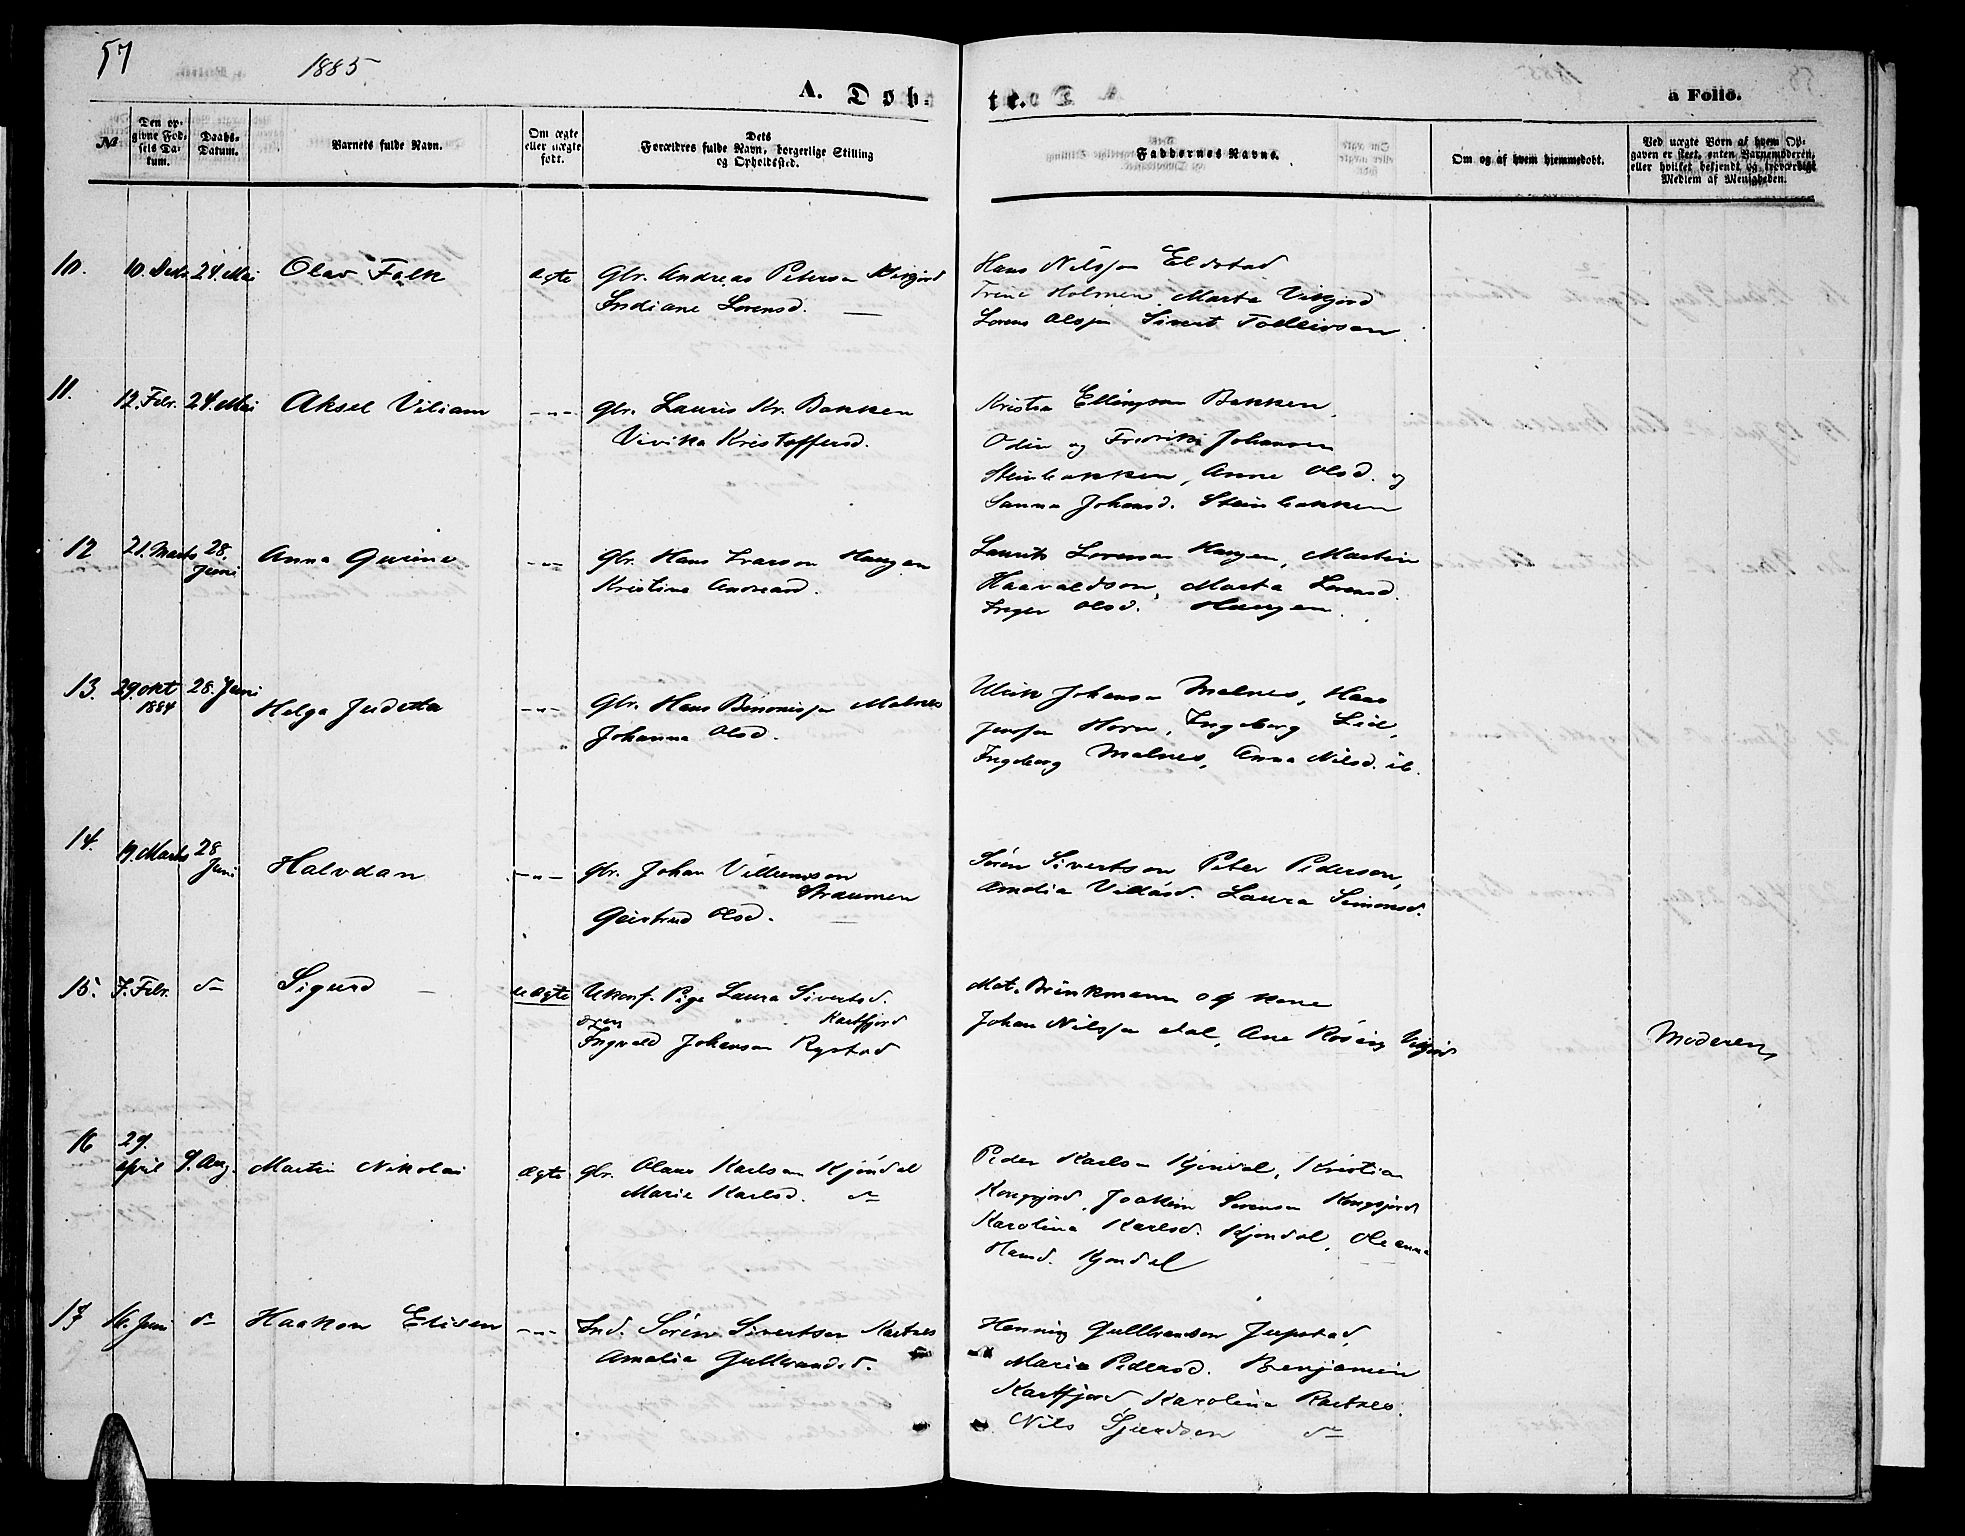 57
1885
A. Døb-
te.
a Folio.
№
Den op-
givne Fød-
sels Da-
tum.
Daabs-
Datum.
Barnets fulde Navn.
Om ægte
eller uægte
født.
Dets
Forældres fulde Navn, borgerlige Stilling
og Opholdssted.
Faddernes Navne.
Om og af hvem hjemmedøbt.
Ved uægte Børn af hvem Op-
gaven er skeet, enten Barnemoderen,
eller hvilket bekjendt og troværdigt
Medlem af Menigheden.
10. 10. Decbr 24. Mai Olav Falk ægte Gbr. Andreas Peterson
Indiane Lorensd.
Hans Nilssøn Eldstad
Trine Holmen Marta Vikjord
Lorens Olssøn Sivert Tolleivsen
11. 12. Febr. 24. Mai Aksel Viliam -"- gbr. Lauris Kr. Bakken
Vivika Kristoffersd.
Kristen Ellingsen Bakken,
Odin og Fredrik Johansen
Steinbakken, Anne Olsd. og
Sanna Johansd. Steinbakken
12 21. Marts 28. Juni Anna Gurine -"- Gbr. Hans Larsen Haugen
Kristine Andreasd.
Laurits Lorensen Haugen, Martin
Haavaldson, Marta Lorensd.
Inger Olsd. Haugen.
13. 29. okt 1884 28. Juni Helga Juditta -"- Gbr. Hans Benonissøn Malnes
Johanna Olsd.
Ulrik Johansen Malnes, Hans
Jenssøn Hovn, Ingeborg Lid,
Ingeborg Malnes, Anna Nilsd. ib.
14. 19. Marts 28 Juni Halvdan -"- gbr. Johan Villumson
Straumen
Gjertrud Olsd.
Sören Sivertson Peter Pederson,
Amalia Villasd. Laura Simonsd.
15. 7. Febr. do Sigurd uægte Ukonf. Pige Laura Sivertsd.
Kartfjord
Ingvald Johansen Rystad
Mat. Brinkmann og kone
Johan Nilssøn Dal, Ane Rösing Vikjord
Moderen
16 29. april 9. Aug. Martin Nikolai ægte gbr. Olaus Karlsen Kjöndal
Marie Karlsd. do
Peder Karlsen Kjöndal, Kristian
Kongsjord, Joakim Sörensen Kongsjord
Karolina Karlsd. Kjöndal, Oleanna
Hansd. Kjöndal
17 16. Juni do Haakon Elisen -"- Ind. Sören Sivertsen Kartnes
Amalia Gullbrandsd.
Henning Gullbrandsen Jupstad,
Maria Pedersd. Benjamin
Kartfjord, Karolina Kartnes.
Nils Sjurdsen do